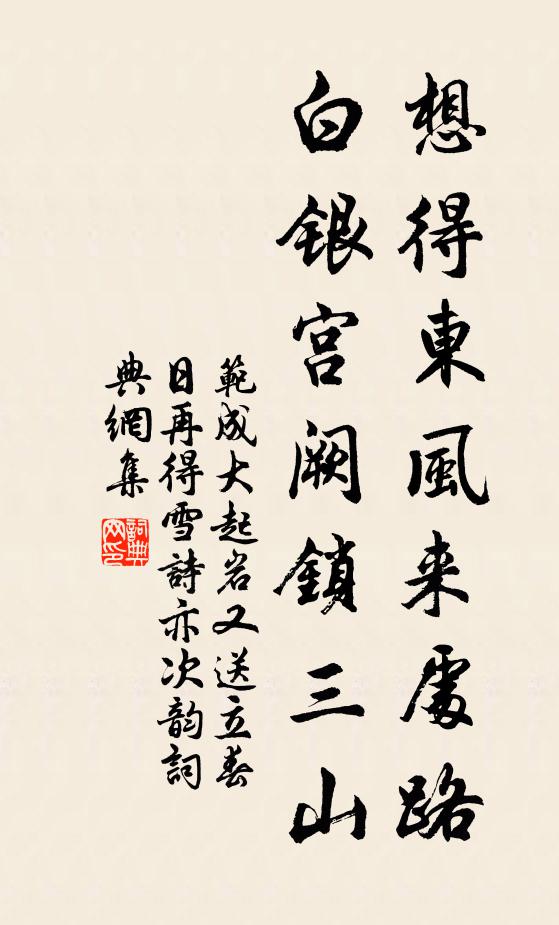 想得東風来處路
白銀宮闕鎖三山
範成大起岩又送立春
日再得雪詩亦次韵詞
典網集
詞典
网印